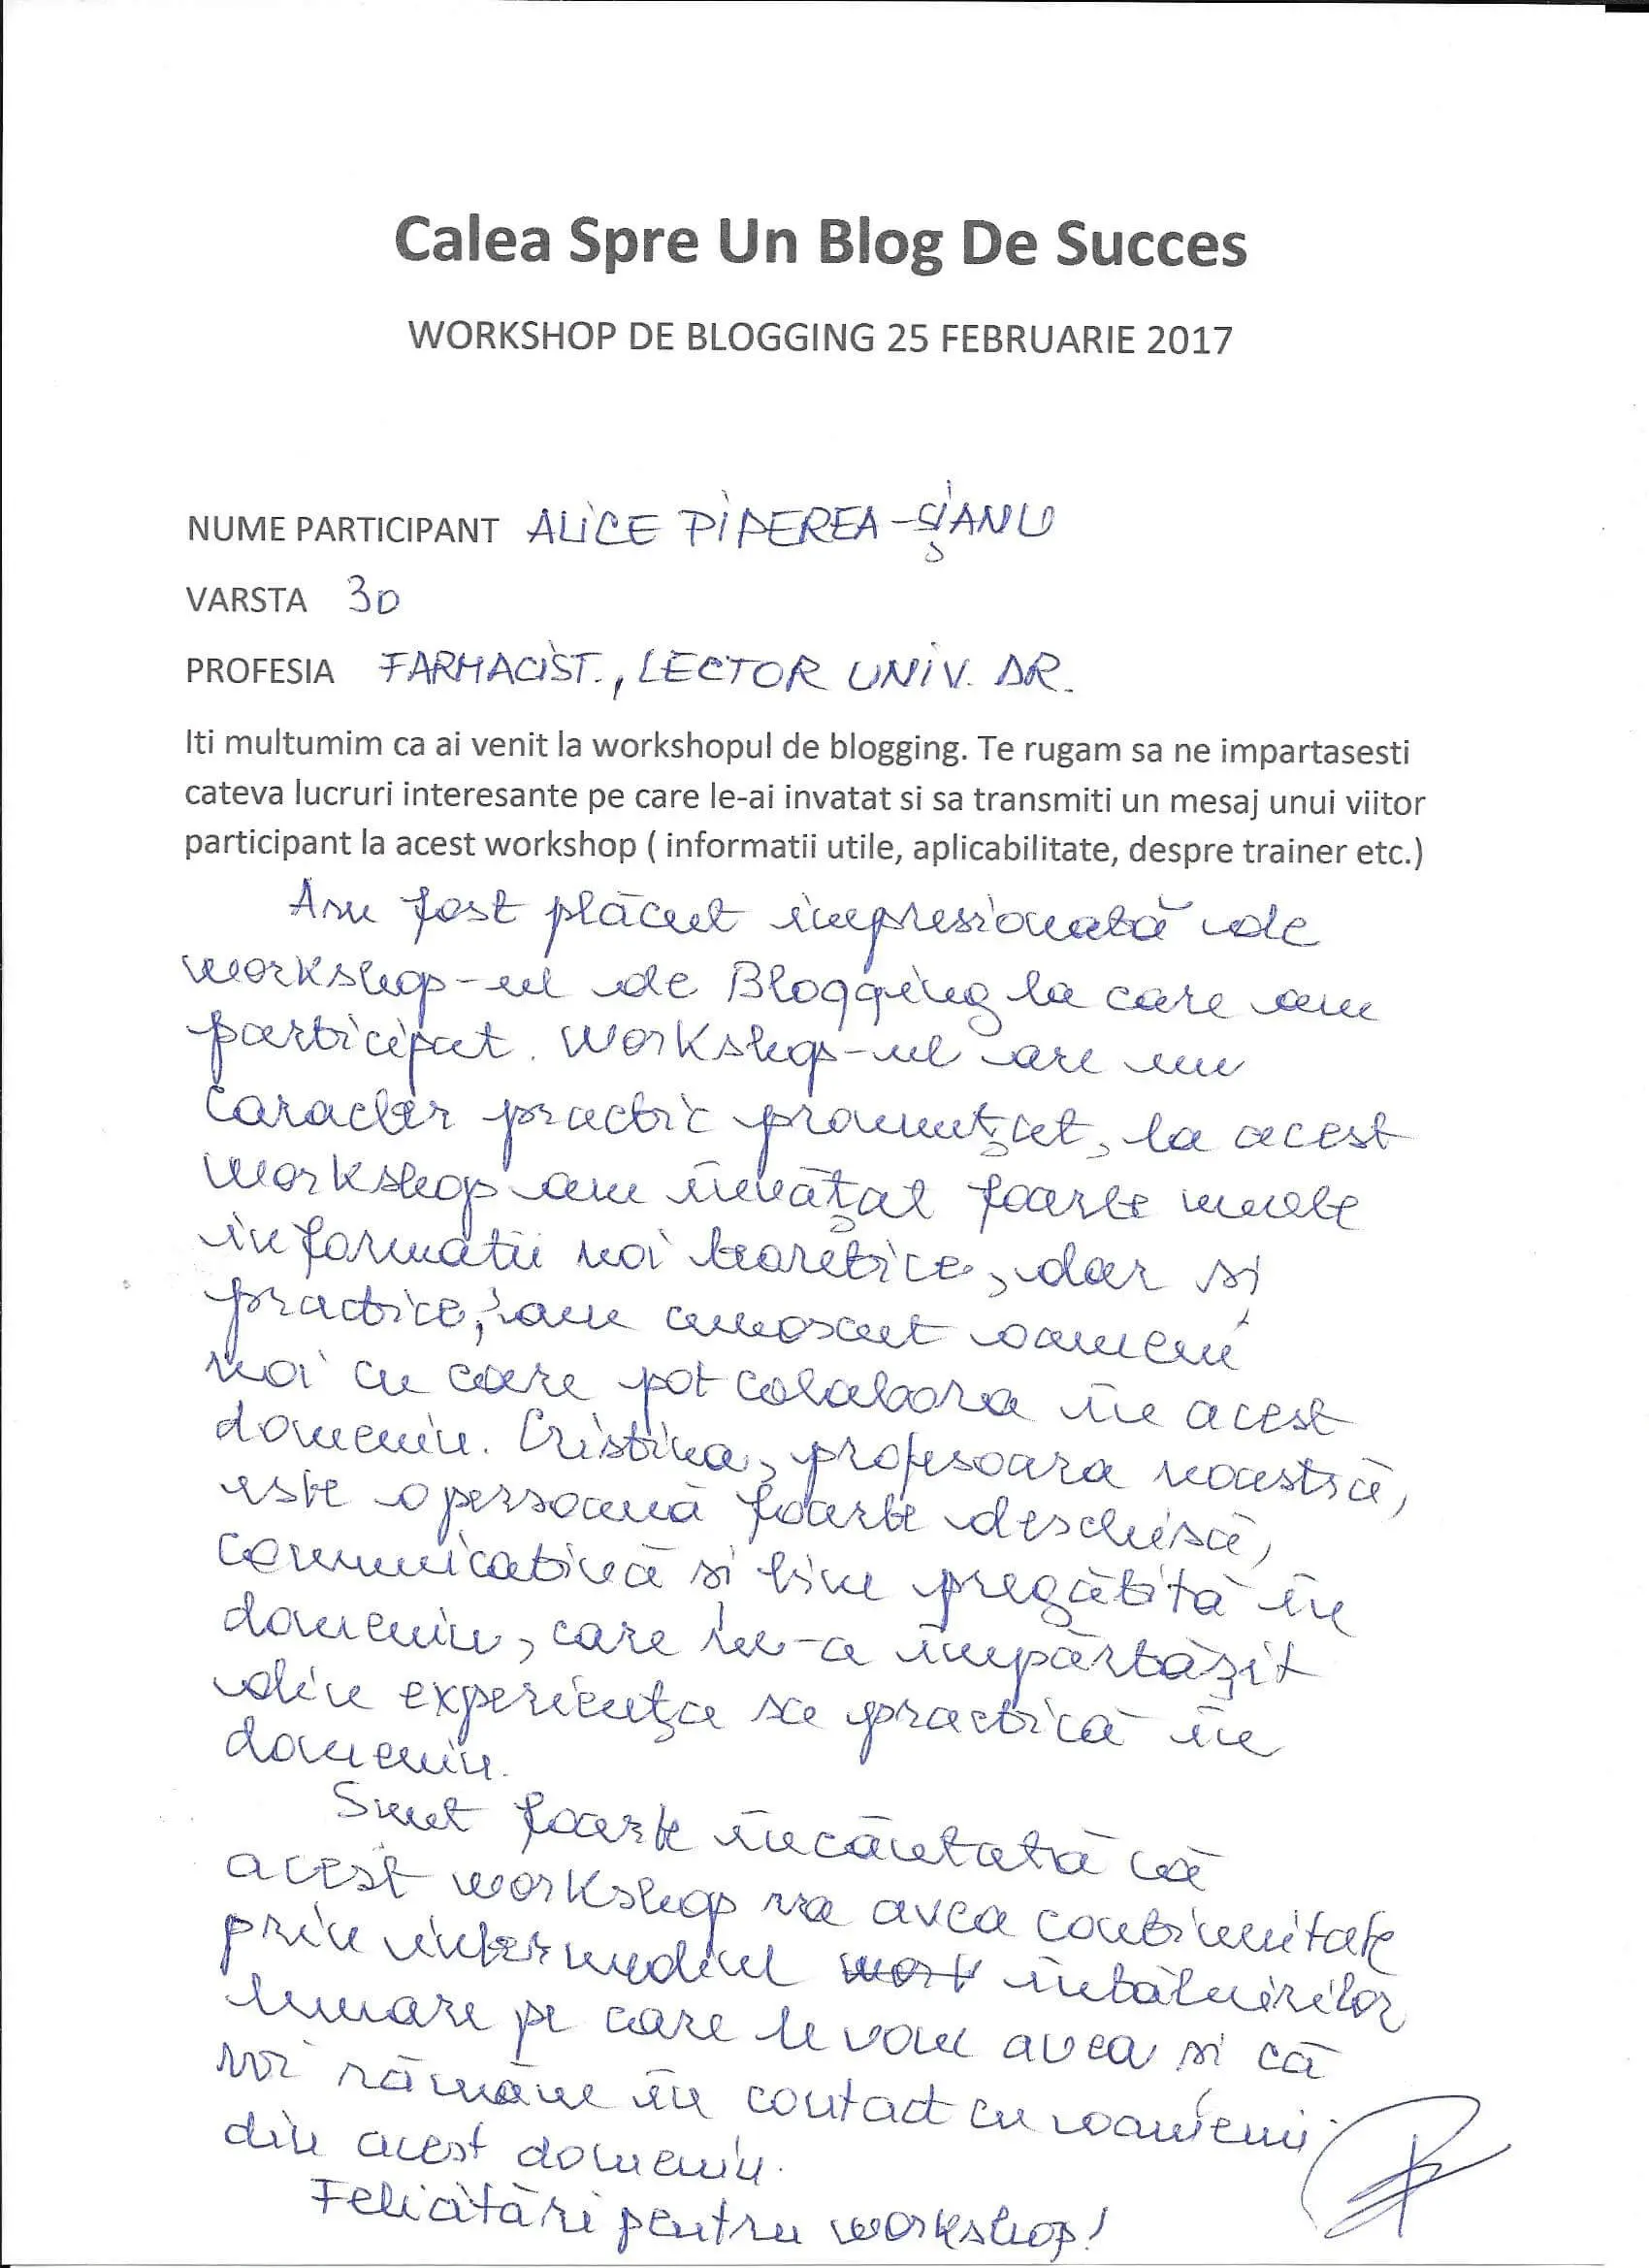 Calea Spre Un Blog De Succes
WORKSHOP DE BLOGGING 25 FEBRUARIE 2017
NUME PARTICIPANT ALICE PIPEREA-ȘIANU
VARSTA 30
PROFESIA FARMACIST., LECTOR UNIV. DR.
Iti multumim ca ai venit la workshopul de blogging. Te rugam sa ne impartasesti
cateva lucruri interesante pe care le-ai invatat si sa transmiti un mesaj unui viitor
participant la acest workshop ( informatii utile, aplicabilitate, despre trainer etc.)
Am fost plăcut impresionată de
workshop-ul de Blogging la care am
participat. Workshop-ul are un
caracter practic pronunțat, la acest
workshop am învățat foarte multe
informatii noi teoretice, dar si
practice, am cunoscut oameni
noi cu care pot colabora în acest
domeniu. Cristina, profesoara noastră,
este o persoană foarte deschisă,
comunicativă si bine pregătită în
domeniu, care ne-a împărtășit
din experiența sa practică în
domeniu.
Sunt foarte încântată că
acest workshop va avea continuitate
prin intermediul întâlnirilor
lunare pe care le vom avea si că
voi rămâne în contact cu oamenii
din acest domeniu.
Felicitări pentru workshop!